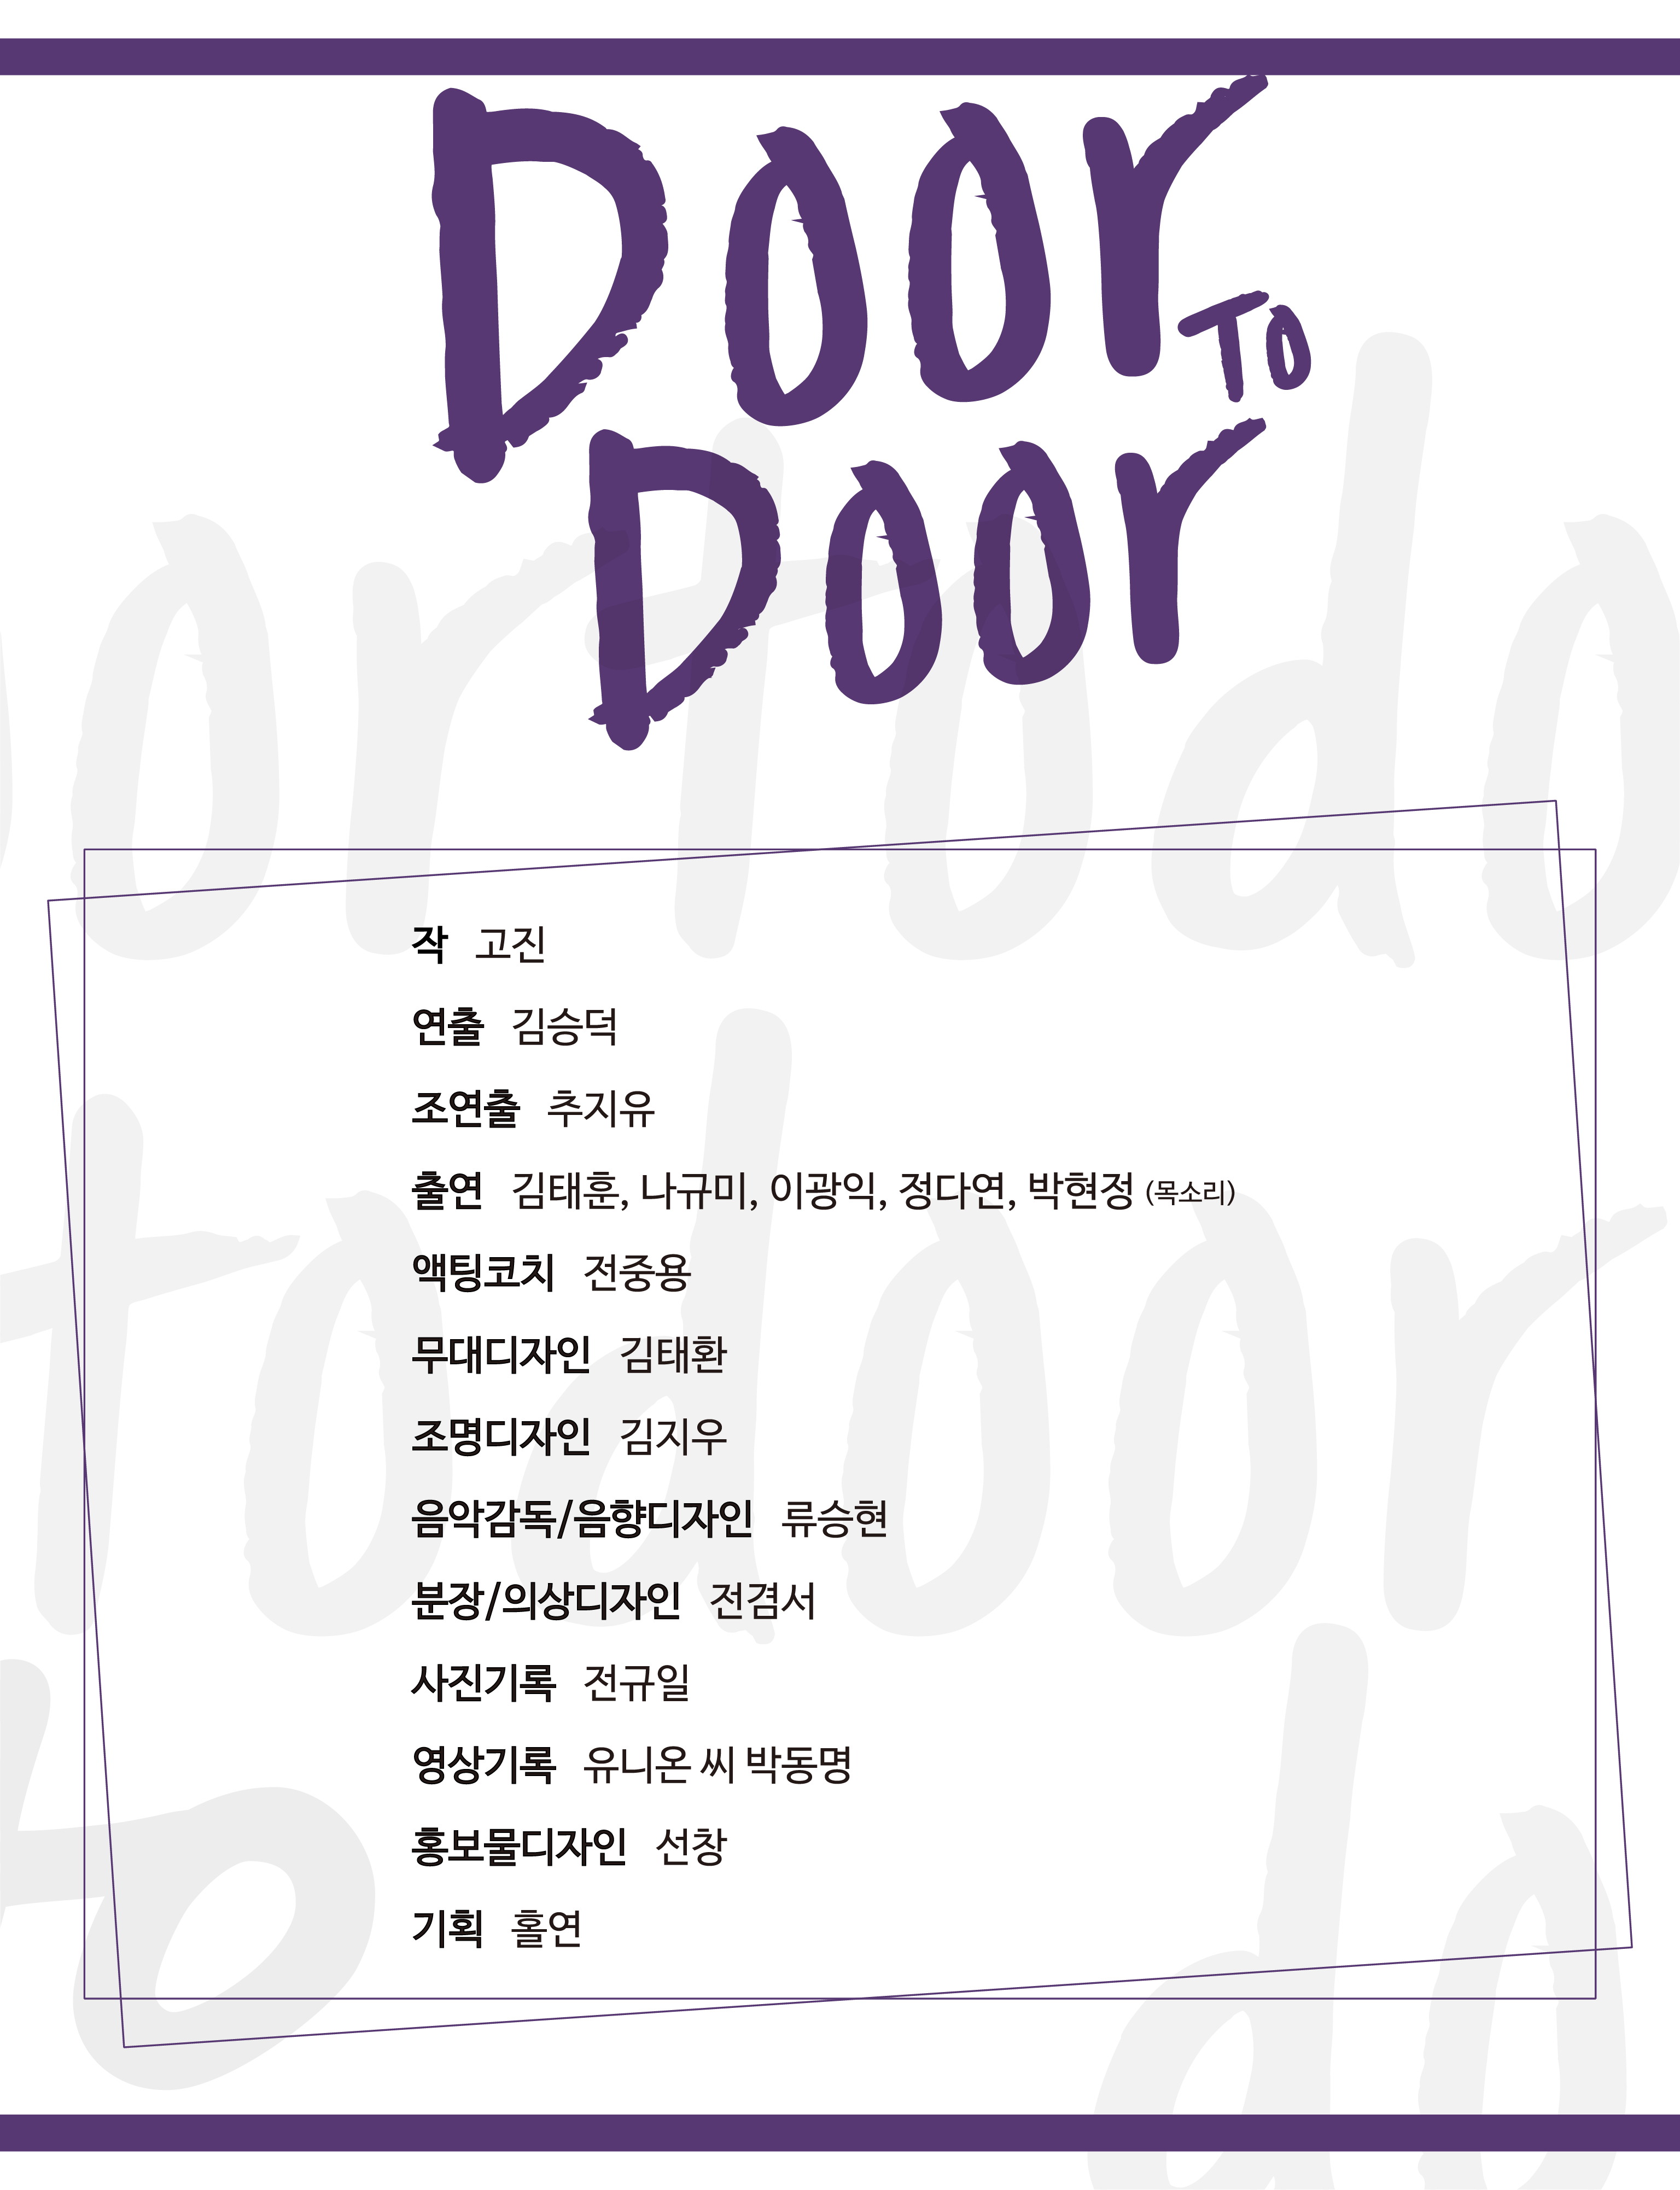 Door
To
Door
작 고진
연출 김승덕
조연출 추지유
출연 김태훈, 나규미, 이광익, 정다연, 박현정 (목소리)
액팅코치 전중용
무대디자인 김태환
조명디자인 김지우
음악감독/음향디자인 류승현
분장/의상디자인 전겸서
사진기록 전규일
영상기록 유니온 씨 박동명
홍보물디자인 선창
기획 홀연